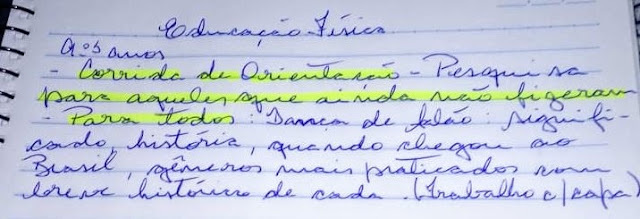 Educação Física
9ºs anos
- Corrida de Orientação - Pesquisa
para aqueles que ainda não fizeram
- Para todos: Dança de Salão: signifi-
cado, história, quando chegou ao
Brasil, gêneros mais praticados com
breve histórico de cada. (Trabalho c/capa)